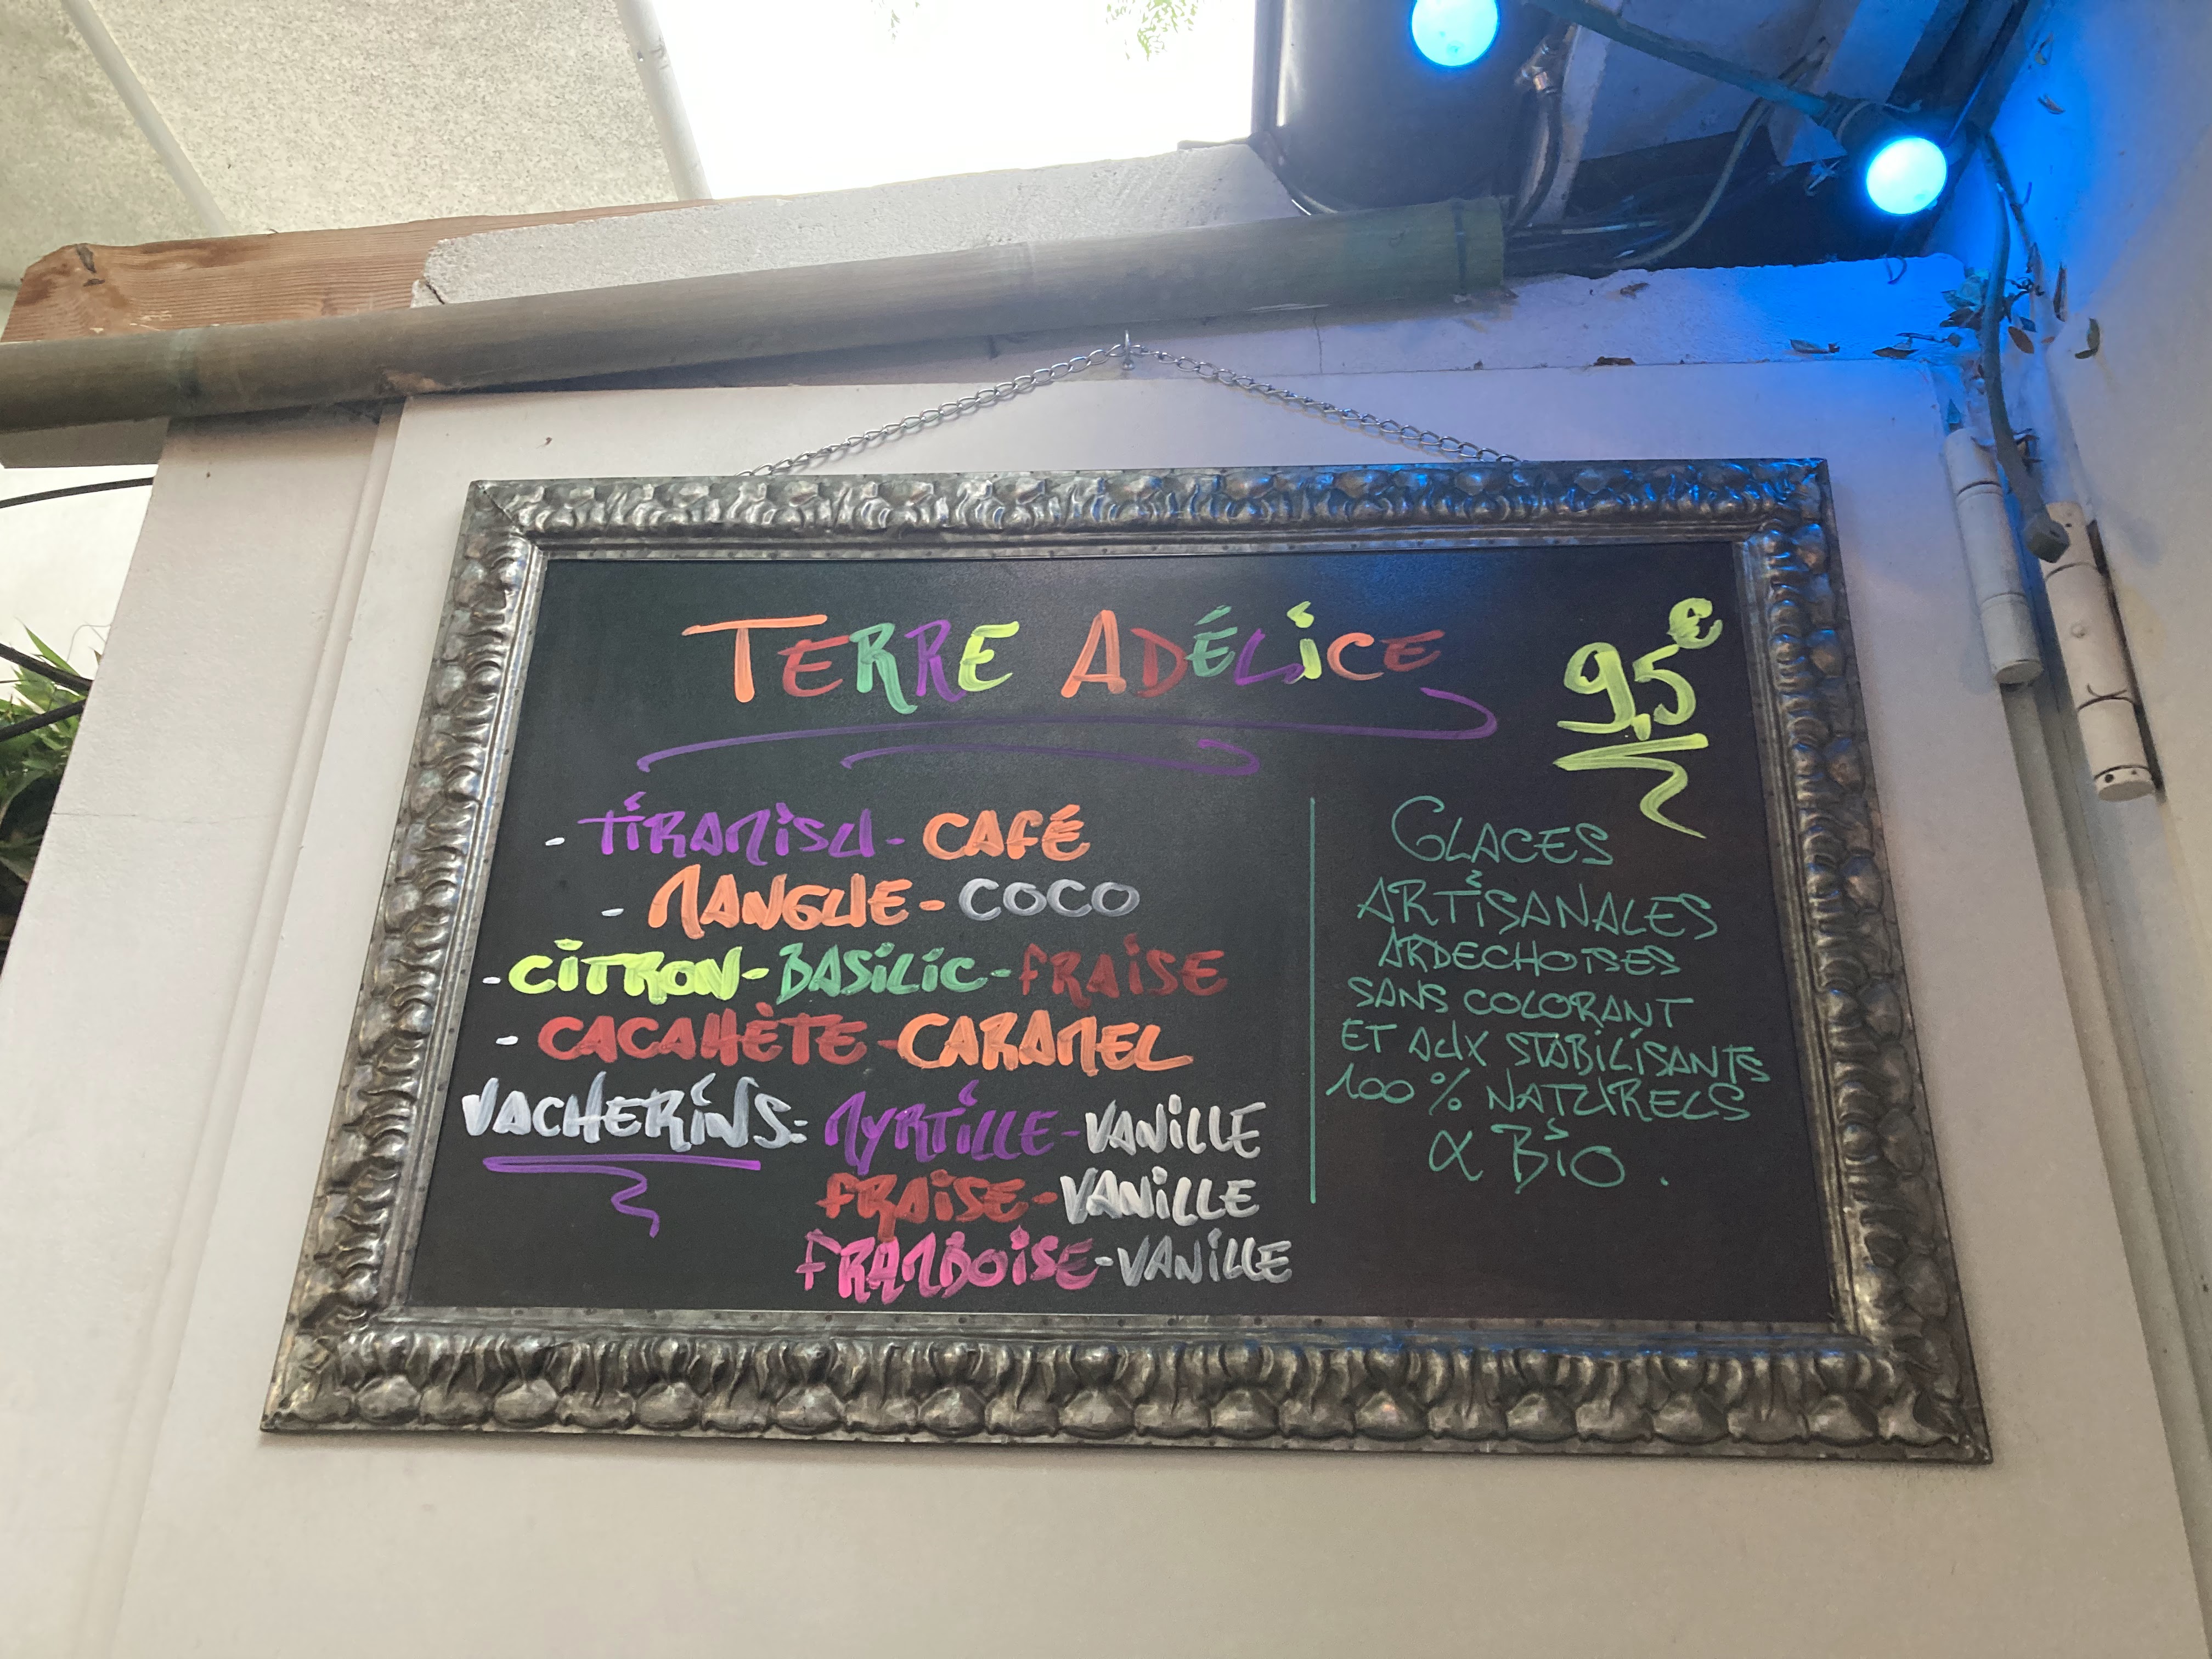 TERRE ADÉLICE
9,5€
- TIRAMISU - CAFÉ
- MANGUE - COCO
- CITRON - BASILIC - FRAISE
- CACAHÈTE - CARAMEL
VACHERINS: MYRTILLE - VANILLE
FRAISE - VANILLE
FRAMBOISE - VANILLE
GLACES
ARTISANALES
ARDECHOISES
SANS COLORANT
ET AUX STABILISANTS
100% NATURELS
& BIO.